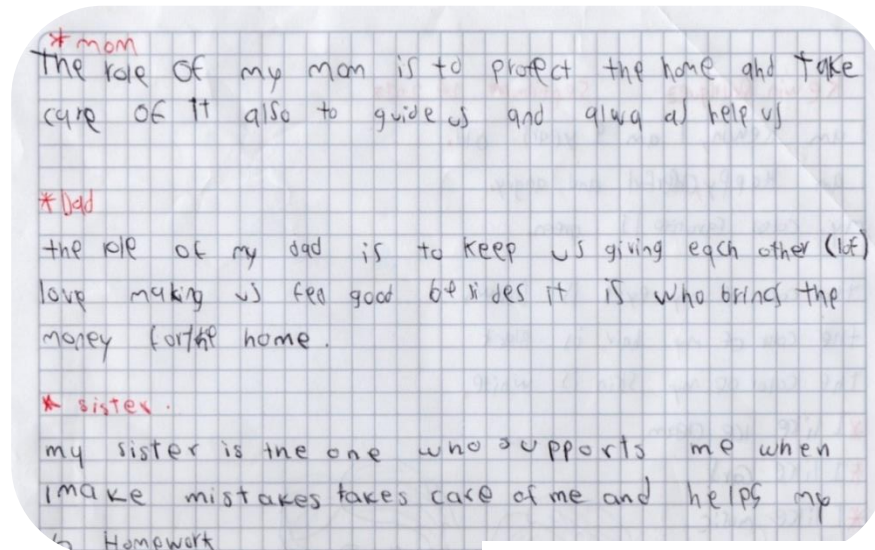 * mom
The role of my mom is to protect the home and take
care of it also to guide us and alwa as help us
* Dad
the role of my dad is to keep us giving each other (lot)
love making us feo good besides it is who brings the
money forthe home.
* sister.
my sister is the one who supports me when
i make mistakes takes care of me and helps my
Homework